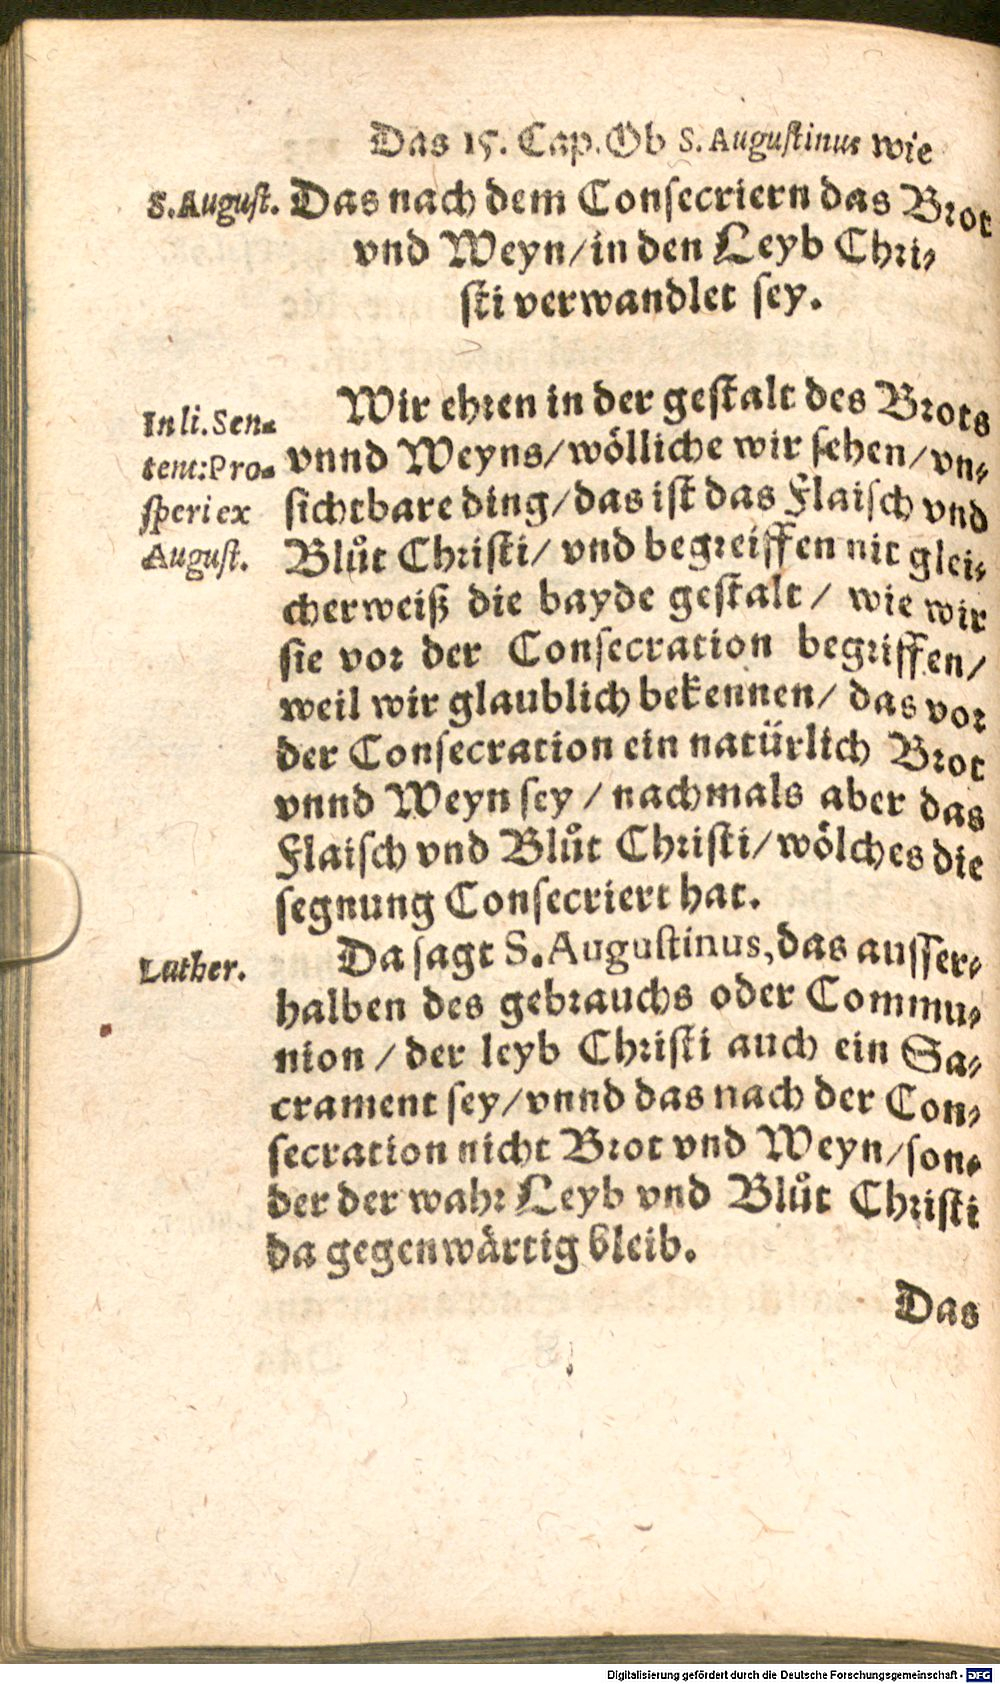 Das 15. Cap. Ob S. Augustinus wie
S. August. Das nach dem Consecriern das Brot
vnd Weyn/ in den Leyb Chri-
sti verwandlet sey.
In li. Sen-
tent: Pro-
speri ex
August.
Wir ehren in der gestalt des Brots
vnnd Weyns/ wölliche wir sehen/ vn-
sichtbare ding/ das ist das Flaisch vnd
Blůt Christi/ vnd begreiffen nit glei-
cherweiß die bayde gestalt/ wie wir
sie vor der Consecration begriffen/
weil wir glaublich bekennen/ das vor
der Consecration ein natürlich Brot
vnnd Weyn sey/ nachmals aber das
Flaisch vnd Blůt Christi/ wölches die
segnung Consecriert hat.
Luther.
Da sagt S. Augustinus, das ausser-
halben des gebrauchs oder Commu-
nion/ der leyb Christi auch ein Sa-
crament sey/ vnnd das nach der Con-
secration nicht Brot vnd Weyn/ son-
der der wahr Leyb vnd Blůt Christi
da gegenwärtig bleib.
Das
Digitalisierung gefördert durch die Deutsche Forschungsgemeinschaft - DFG